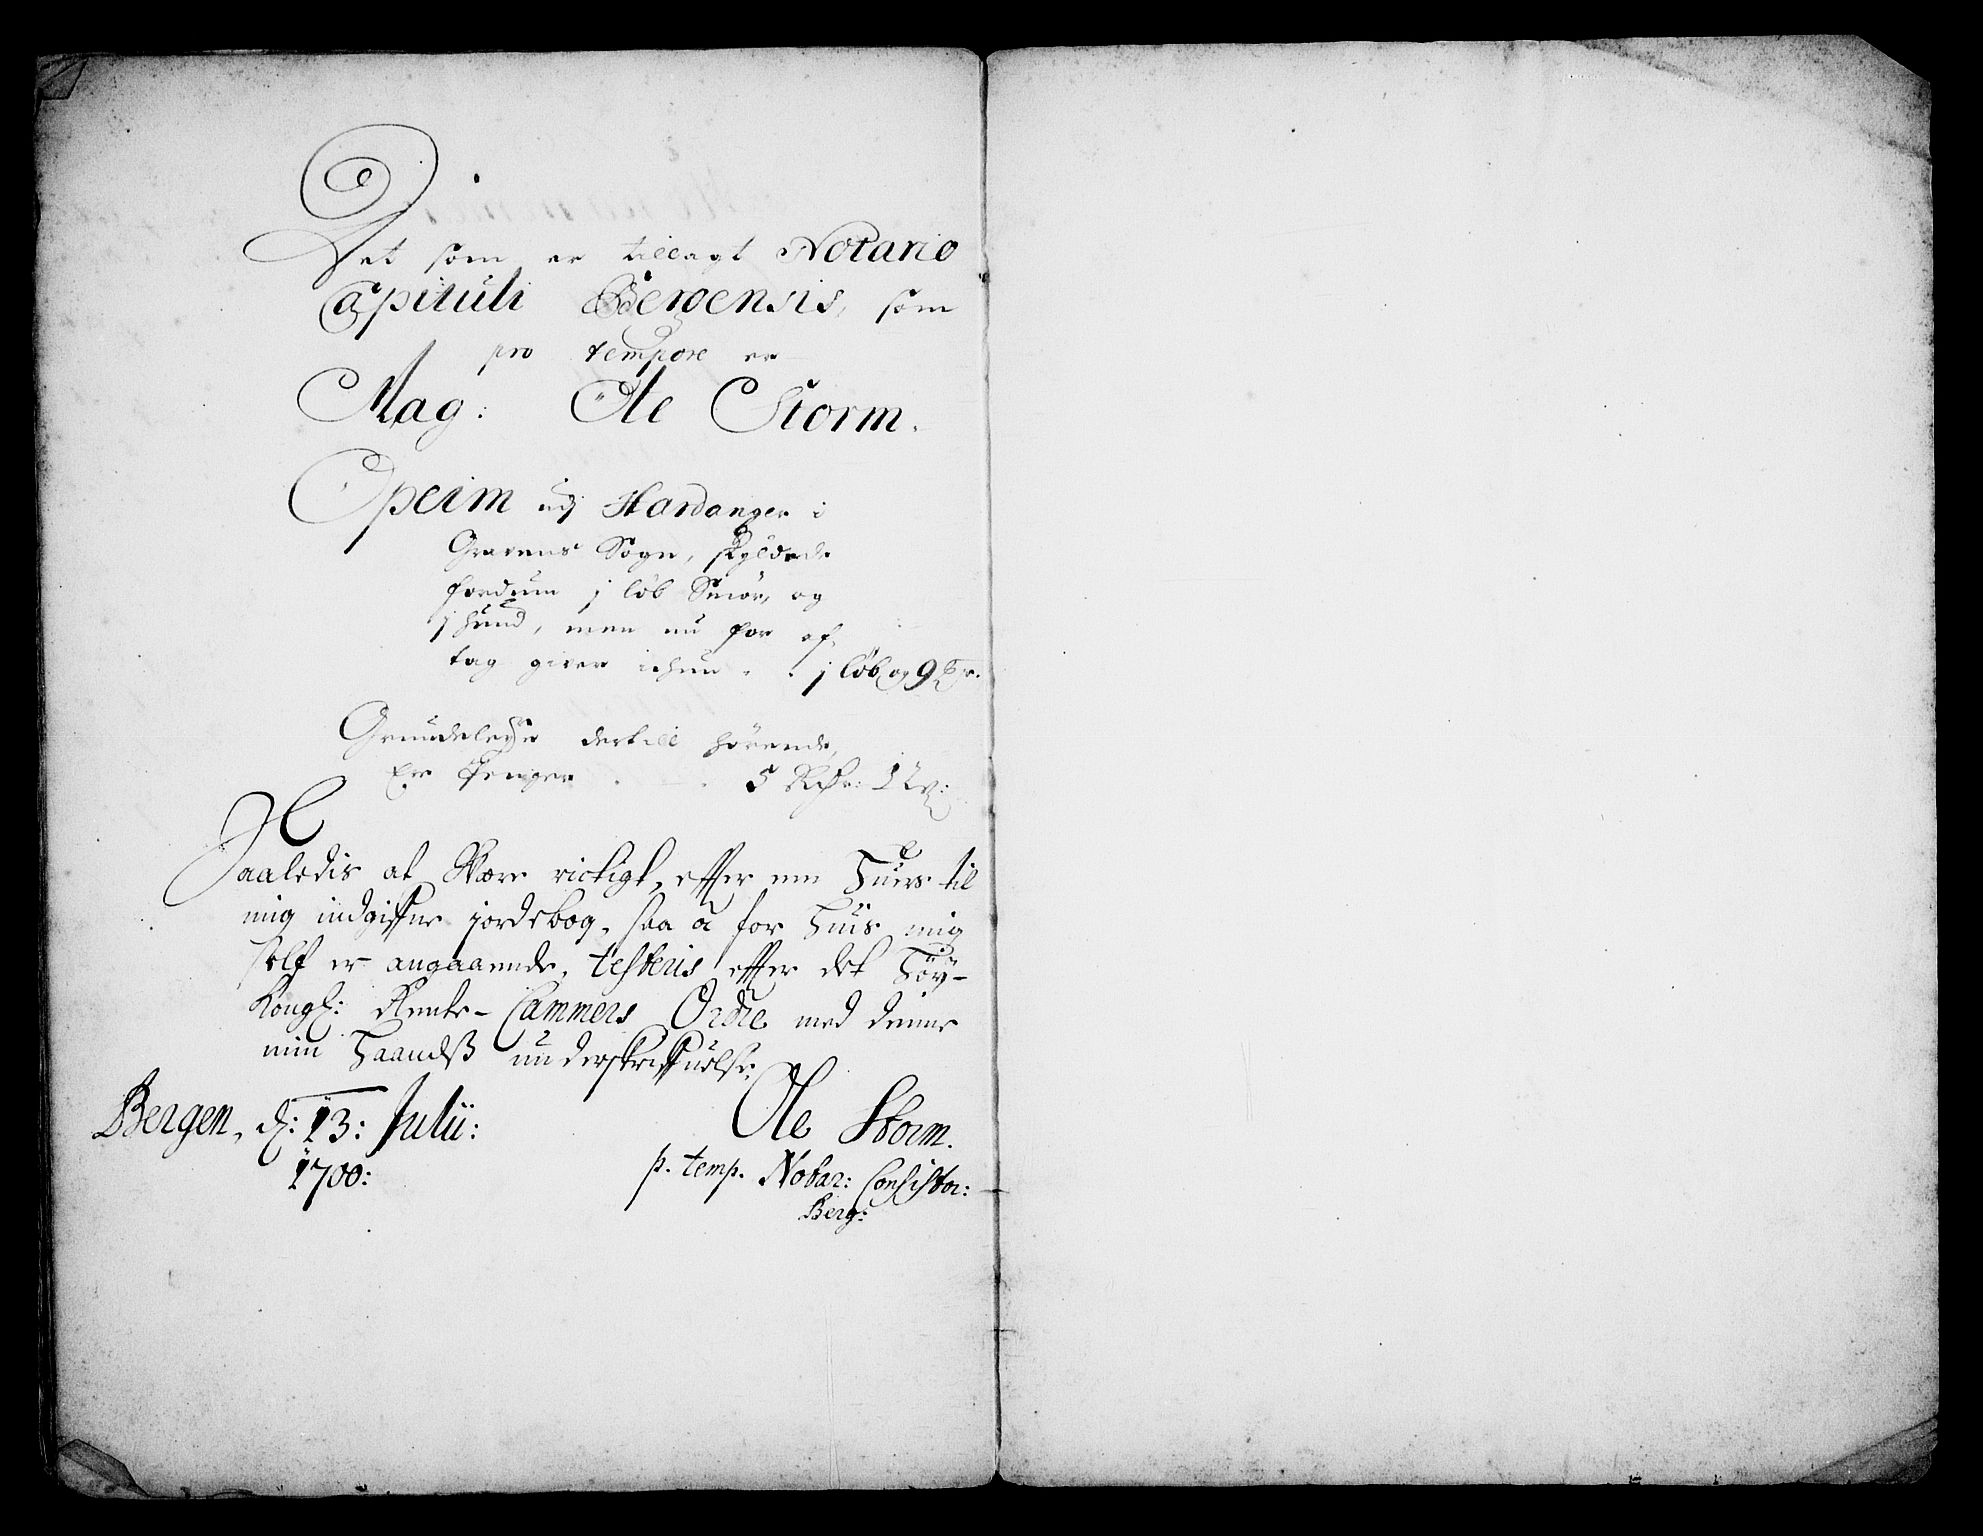 Det som er tillagt Notario
Capituli Bergensis, som
pro tempore er
Mag: Ole Storm.
Opeim udj Hardanger i
Gravens Sogn, skylded
fordum j løb Smør, og
j hund, men nu for af
tag giver ichun . . j løb og 9
Grundeleye dertill hørende,
Er Penger . — . 5 Rdr: 12 ß:
Saaledis at være rictigt, effter een Huers til
mig indgiffne jordebog, saa á for huis mig
self er angaaende, testeris effter det Høy-
Kongl: Rente-Cammers Ordre med denne
min Haandß underskriffuelse.
Bergen, d: 13: Julii:
1700:
Ole Storm.
p. temp. Notar: Consistor:
Berg: